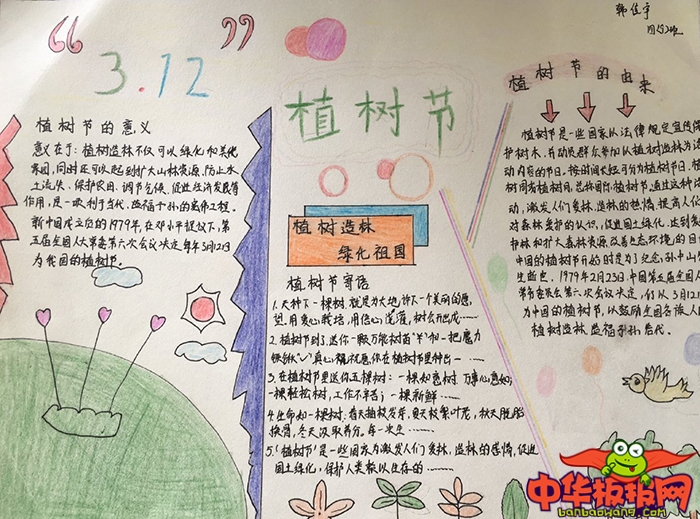 韩佳宇
"3.12"
植树节
植树节的意义
意义在于:植树造林不仅可以绿化和美化
家园,同时还可以起到扩大山林资源、防止水
土流失、保护农田、调节气候、促进经济发展等
作用,是一项利于当代、造福子孙的宏伟工程。
新中国成立后的1979年,在邓小平提议下,第
五届全国人大常委第六次会议决定每年3月12日
为我国的植树节。
植树造林
绿化祖国
植树节寄语
1.天种下一棵树,就是为大地许下一个美丽的愿
望,用爱心栽培,用信心浇灌,树会形成……
2.植树节到了,送你一颗万能树苗"羊"和一把魔力
真心 祝愿你在植树节里种出一……
3.在植树节里送你五棵树:一棵如意树,万事心意如;
一棵轻松树,工作不辛苦;一棵新鲜……
4.生命如一棵树:春天抽枝发芽,夏天枝繁叶茂,秋天脱胎
换骨,冬天汲取养分。每一次生……
5.「植树节」是一些国家为激发人们爱林、造林的感情,促进
国土绿化,保护人类赖以生存的……
植树节的由来
植树节是一些国家以法律规定宣传保
护树木,并动员群众参加以植树造林为活
动内容的节日。按时间长短可分为植树节日、植
树周者植树月,总称国际植树节。通过这种活
动,激发人们爱林、造林的热情,提高人们
对森林爱护的认识,促进国土绿化,达到爱
护林和扩大森林资源、改善态环境的目
中国的植树节开始时是为了纪念孙中山先
生逝世。1979年2月23日,中国第五届全国人
常务委员会第六次会议决定,仍以3月12日
为中国的植树节,以鼓励全国各族人
植树造林 造福子孙后代。
中华板报网
banbaowang.com